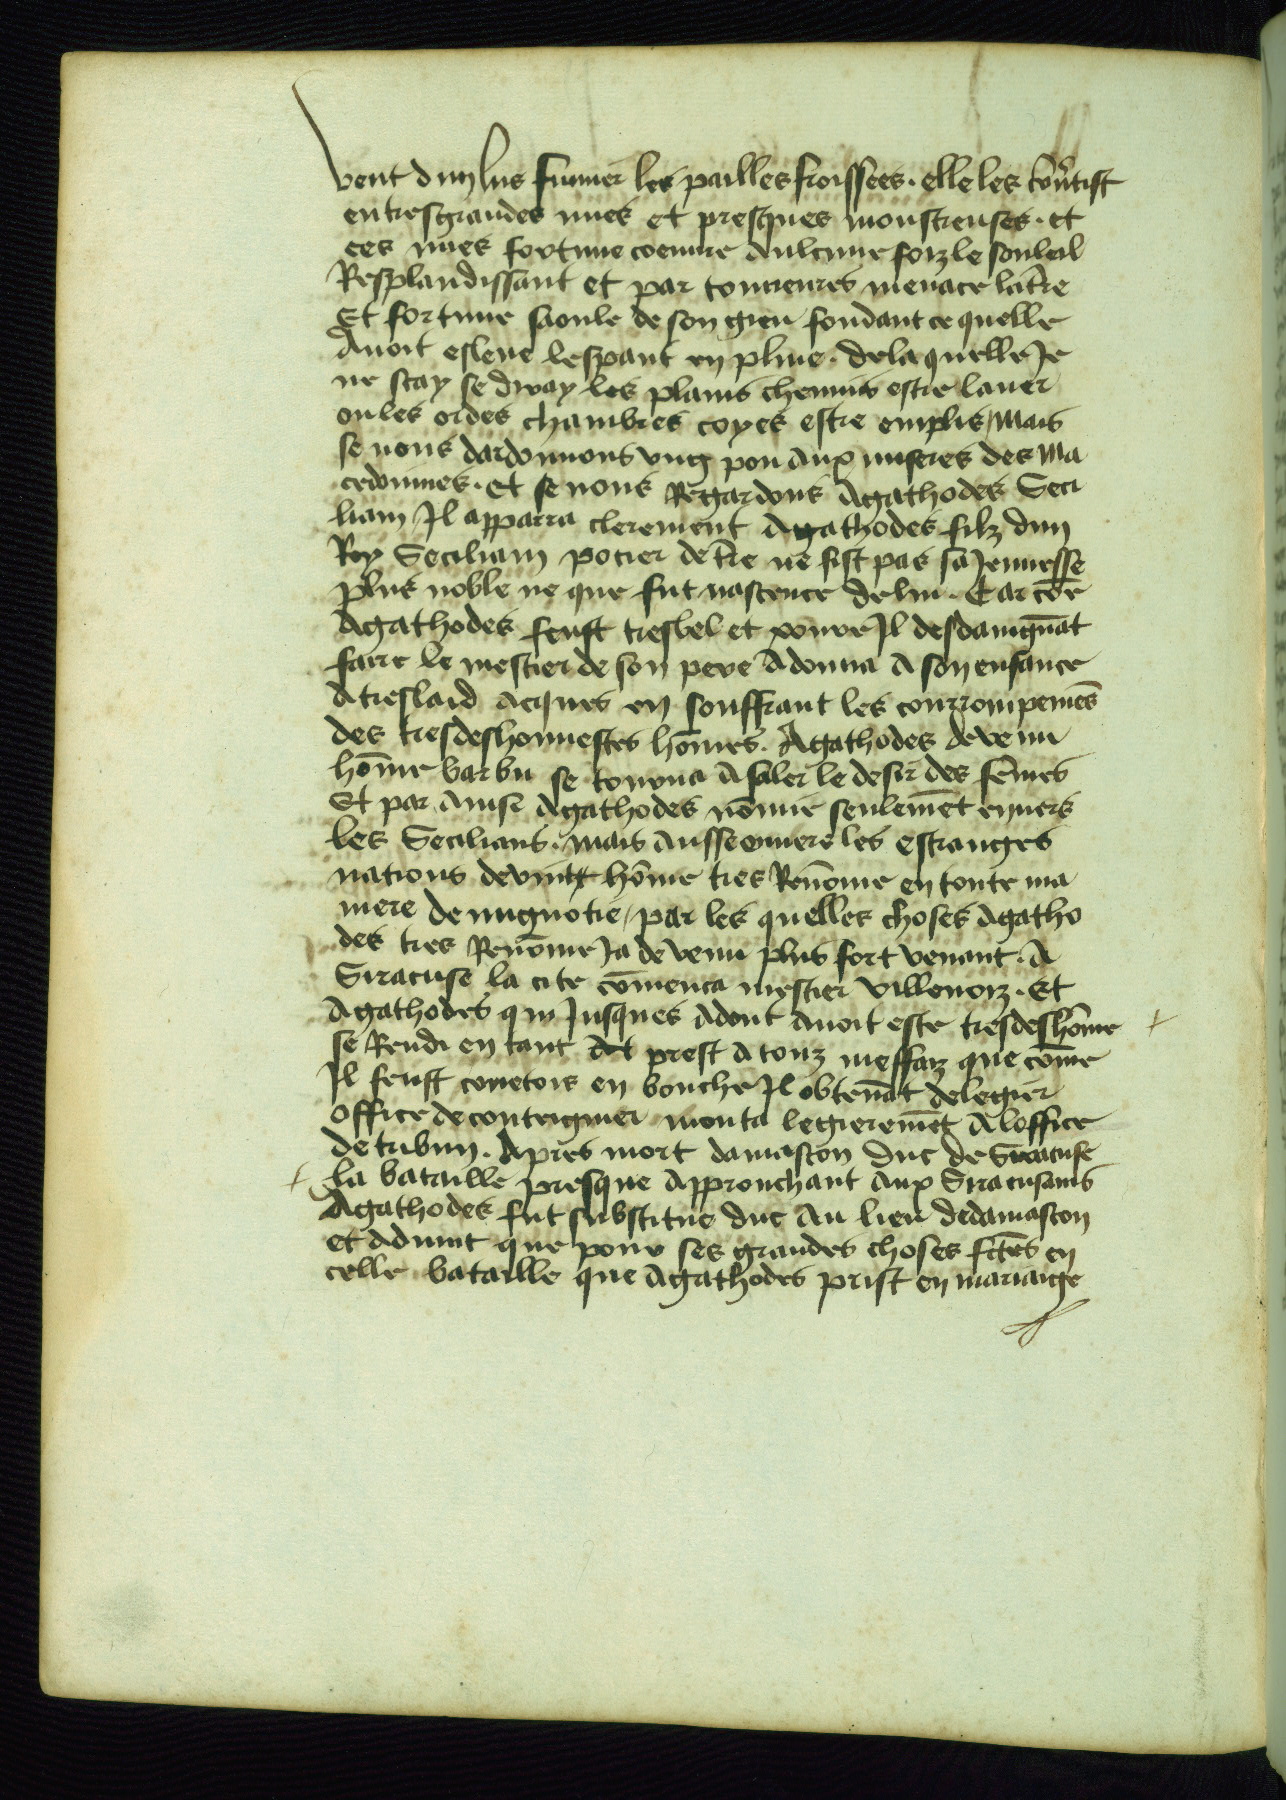 vent dung lieu fumier les pailles froissees . elle les cōv̄tist
en tresgrandes nues et presques monstreuses . et
ces nues fortune coeuvre aulcune foiz le souleil
Resplandissant et par tonneures menace la t̄re
Et fortune saoule de son gieu fondant ce quelle
Avoit esleve lespant en pluie . de la quelle Je
ne scay se diray les plains chemins estre laver
ou les ordes chambres coyes estre emplis / Mais
se nous dardonnons ung pou aux miseres des Ma
cedonnies . Et se nous Regardons Agathodes Seci
liam / Il apparra clerement Agathodes filz dun
Roy Seciliam potier de t̄re ne fist pas sa Jeunesse
plus noble ne que fut nascence de lui . Car cōe
Agathodes feust tresbel et povre Il desdaingnāt
faire le mestier de son pere Adonna a son enfance
a treslaid acques en souffrant les courrompemēs
des tresdeshonnestes hōmes . Agathodes devenu
hōme barbu se tourna a saler le desir des fēmes
Et par ainsi Agathodes nōmie seulemēt envers
les Secilians . mais aussi envers les estranges
nations devint hōme tres Renōme en toute ma
niere de mignotie / par les quelles choses Agatho
des tres Renōme Ja devenu plus fort venant . A
Siracuse la cite cōmenca mestier villenoiz . Et
Agathodes qui Jusques adont avoit este tresdeshōme
se Rendi en tant prest a touz meffaiz que cōme
Il feust couetois en bouche Il obtenāt de legier
office de contregner monta legieremēt a loffice
de tribun . Apres mort damascon duc de Siracuse
la bataille presque approuchant aux Siracusains
Agathodes fut substitue duc au lieu de damascon
et advint que pour ses grandes choses fc̄tes en
celle bataille que Agathodes prist en mariaige